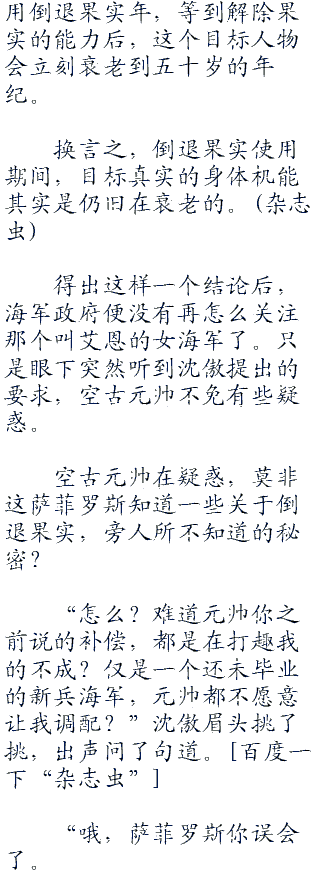 用倒退果实年，等到解除果
实的能力后，这个目标人物
会立刻衰老到五十岁的年
纪。
换言之，倒退果实使用
期间，目标真实的身体机能
其实是仍旧在衰老的。(杂志
虫)
得出这样一个结论后，
海军政府便没有再怎么关注
那个叫艾恩的女海军了。只
是眼下突然听到沈傲提出的
要求，空古元帅不免有些疑
惑。
空古元帅在疑惑，莫非
这萨菲罗斯知道一些关于倒
退果实，旁人所不知道的秘
密？
“怎么？难道元帅你之
前说的补偿，都是在打趣我
的不成？仅是一个还未毕业
的新兵海军，元帅都不愿意
让我调配？”沈傲眉头挑了
挑，出声问了句道。[百度一
下“杂志虫”]
“哦，萨菲罗斯你误会
了。